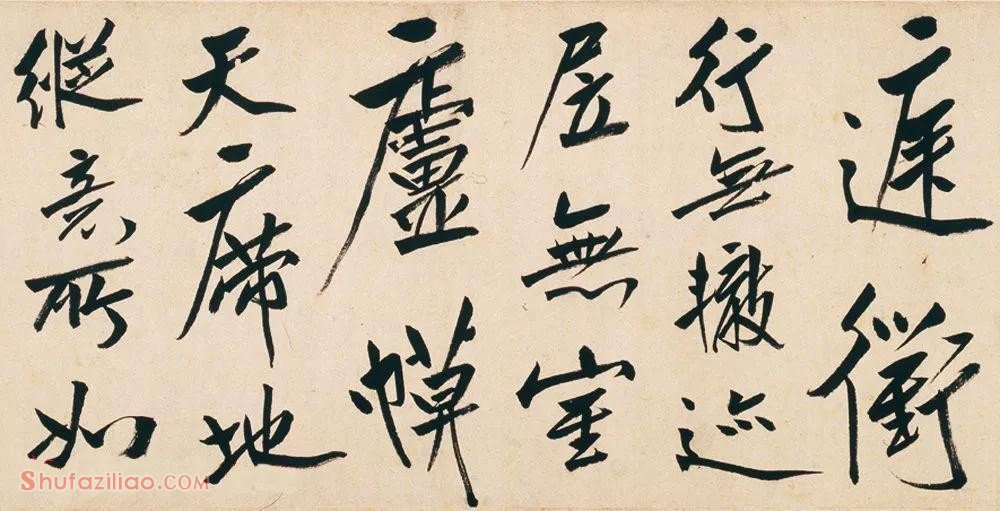 庭衢
行無轍迹
居無室
廬幙
天席地
縱意所如
Shufaziliao.COM